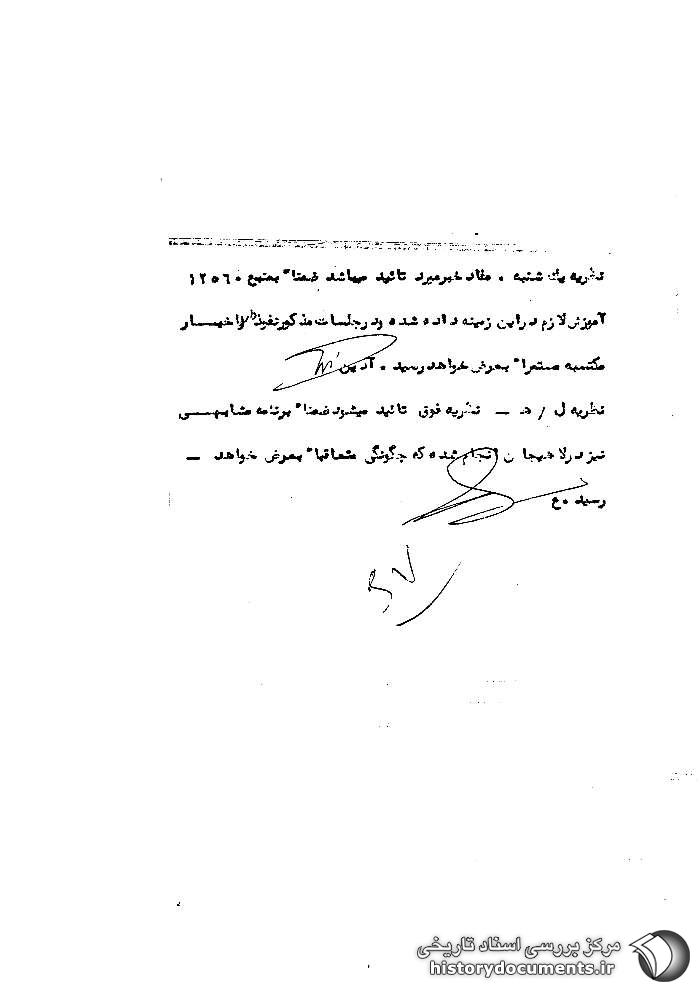 نظریه یک شنبه . مفاد خبر مورد تائید میباشد ضمنا" بمنبع ١٢٥٦٠
آموزش لازم در این زمینه داده شده و در جلسات مذکور نفوذ و اخبار
مکتسبه مستمرا" بعرض خواهد رسید . آدمین
نظریه ل / ه ـ نظریه فوق تائید میشود ضمنا" برنامه مشابهی
نیز در لاهیجان انجام شده که چگونگی متعاقبا" بعرض خواهد ـ
رسید .ع
مرکز بررسی اسناد تاریخی
historydocuments.ir